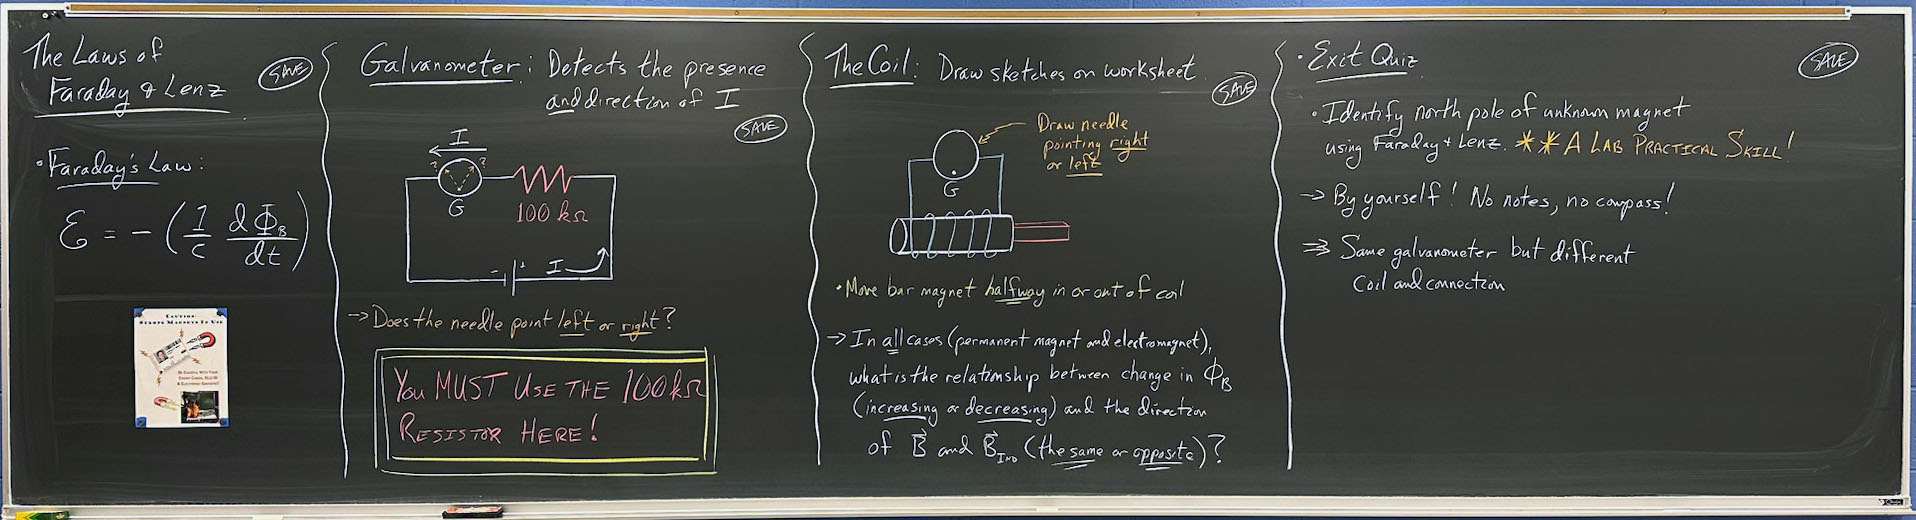 The Laws of
Faraday & Lenz
SAVE
• Faraday's Law:
ℰ = - (1/c dΦ_B/dt)
CAUTION:
STRONG MAGNETS IN USE
BE CAREFUL WITH YOUR
CREDIT CARDS, BLU ID
& ELECTRONIC GADGETS!
Galvanometer: Detects the presence
and direction of I
SAVE
I
? ?
G
100 kΩ
- + I
→ Does the needle point left or right?
YOU MUST USE THE 100 kΩ
RESISTOR HERE!
The Coil: Draw sketches on worksheet
SAVE
Draw needle
pointing right
or left
G
• Move bar magnet halfway in or out of coil
→ In all cases (permanent magnet and electromagnet),
what is the relationship between change in Φ_B
(increasing or decreasing) and the direction
of B⃗ and B⃗_IND (the same or opposite)?
• Exit Quiz
SAVE
• Identify north pole of unknown magnet
using Faraday + Lenz. ** A LAB PRACTICAL SKILL!
→ By yourself! No notes, no compass!
⇒ Same galvanometer but different
coil and connection